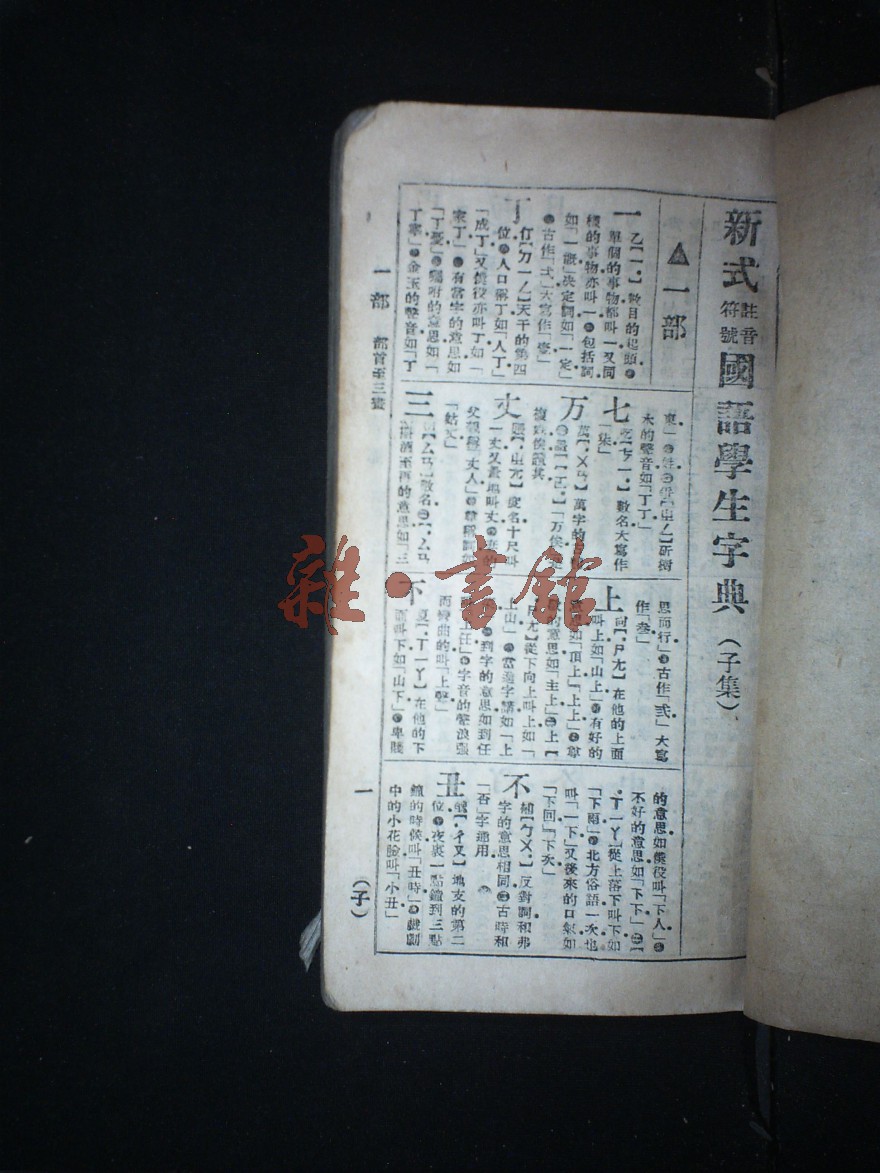 新式註音符號國語學生字典(子集)
▲一部
一 乙【一。】數目的起頭●
單個的事物都叫一又同
樣的事物亦叫一●包括詞
如「一概」決定詞如「一定」
●古作「弌」大寫作「壹」
丁 仃【ㄉㄧㄥ】天干的第四
位●人口稱丁如「人丁」
「成丁」又僕役亦叫丁如「
家丁」●有當字的意思如
「丁憂」●囑咐的意思如「
丁寧」●金玉的聲音如「丁
【ㄓㄥ】斫樹
木的聲音如「丁丁」
七 【ㄘㄧ。】數名大寫作
「柒」
万 萬【ㄨㄢ】萬字的
複姓俟讀其
丈 【ㄓㄤ】度名十尺叫
一丈又丈量叫丈
父親叫「丈人」
「姑丈」
三 【ㄙㄢ】數名㊁【ㄙㄢ
的意思如「三
思而行」●古作「弎」大寫
作「叁」
上 【ㄕㄤ】在他的上面
叫上如「山上」●有好的
意思如「頂上」「上上」●尊
的意思如「主上」㊁上【
ㄕㄤ】從下向上叫上如「
上山」●當進字講如「上
●到字的意思如到任
「上任」●字音的聲浪強
而彎曲的叫「上聲」
下 夏【ㄒㄧㄚ】在他的下
面叫下如「山下」●卑賤
的意思如僕役叫「下人」●
不好的意思如「下下」㊁【
ㄒㄧㄚ】從上落下叫下如
「下雨」●北方俗語一次也
叫「一下」又後來的口氣如
「下回」「下次」
不 【ㄅㄨ。】反對詞和弗
字的意思相同㊁古時和
「否」字通用
丑 【ㄔㄡ】地支的第二
位●夜裏一點鐘到三點
鐘的時候叫「丑時」●戲劇
中的小花臉叫「小丑」
一部 部首至三畫
一
(子)
雜·書館